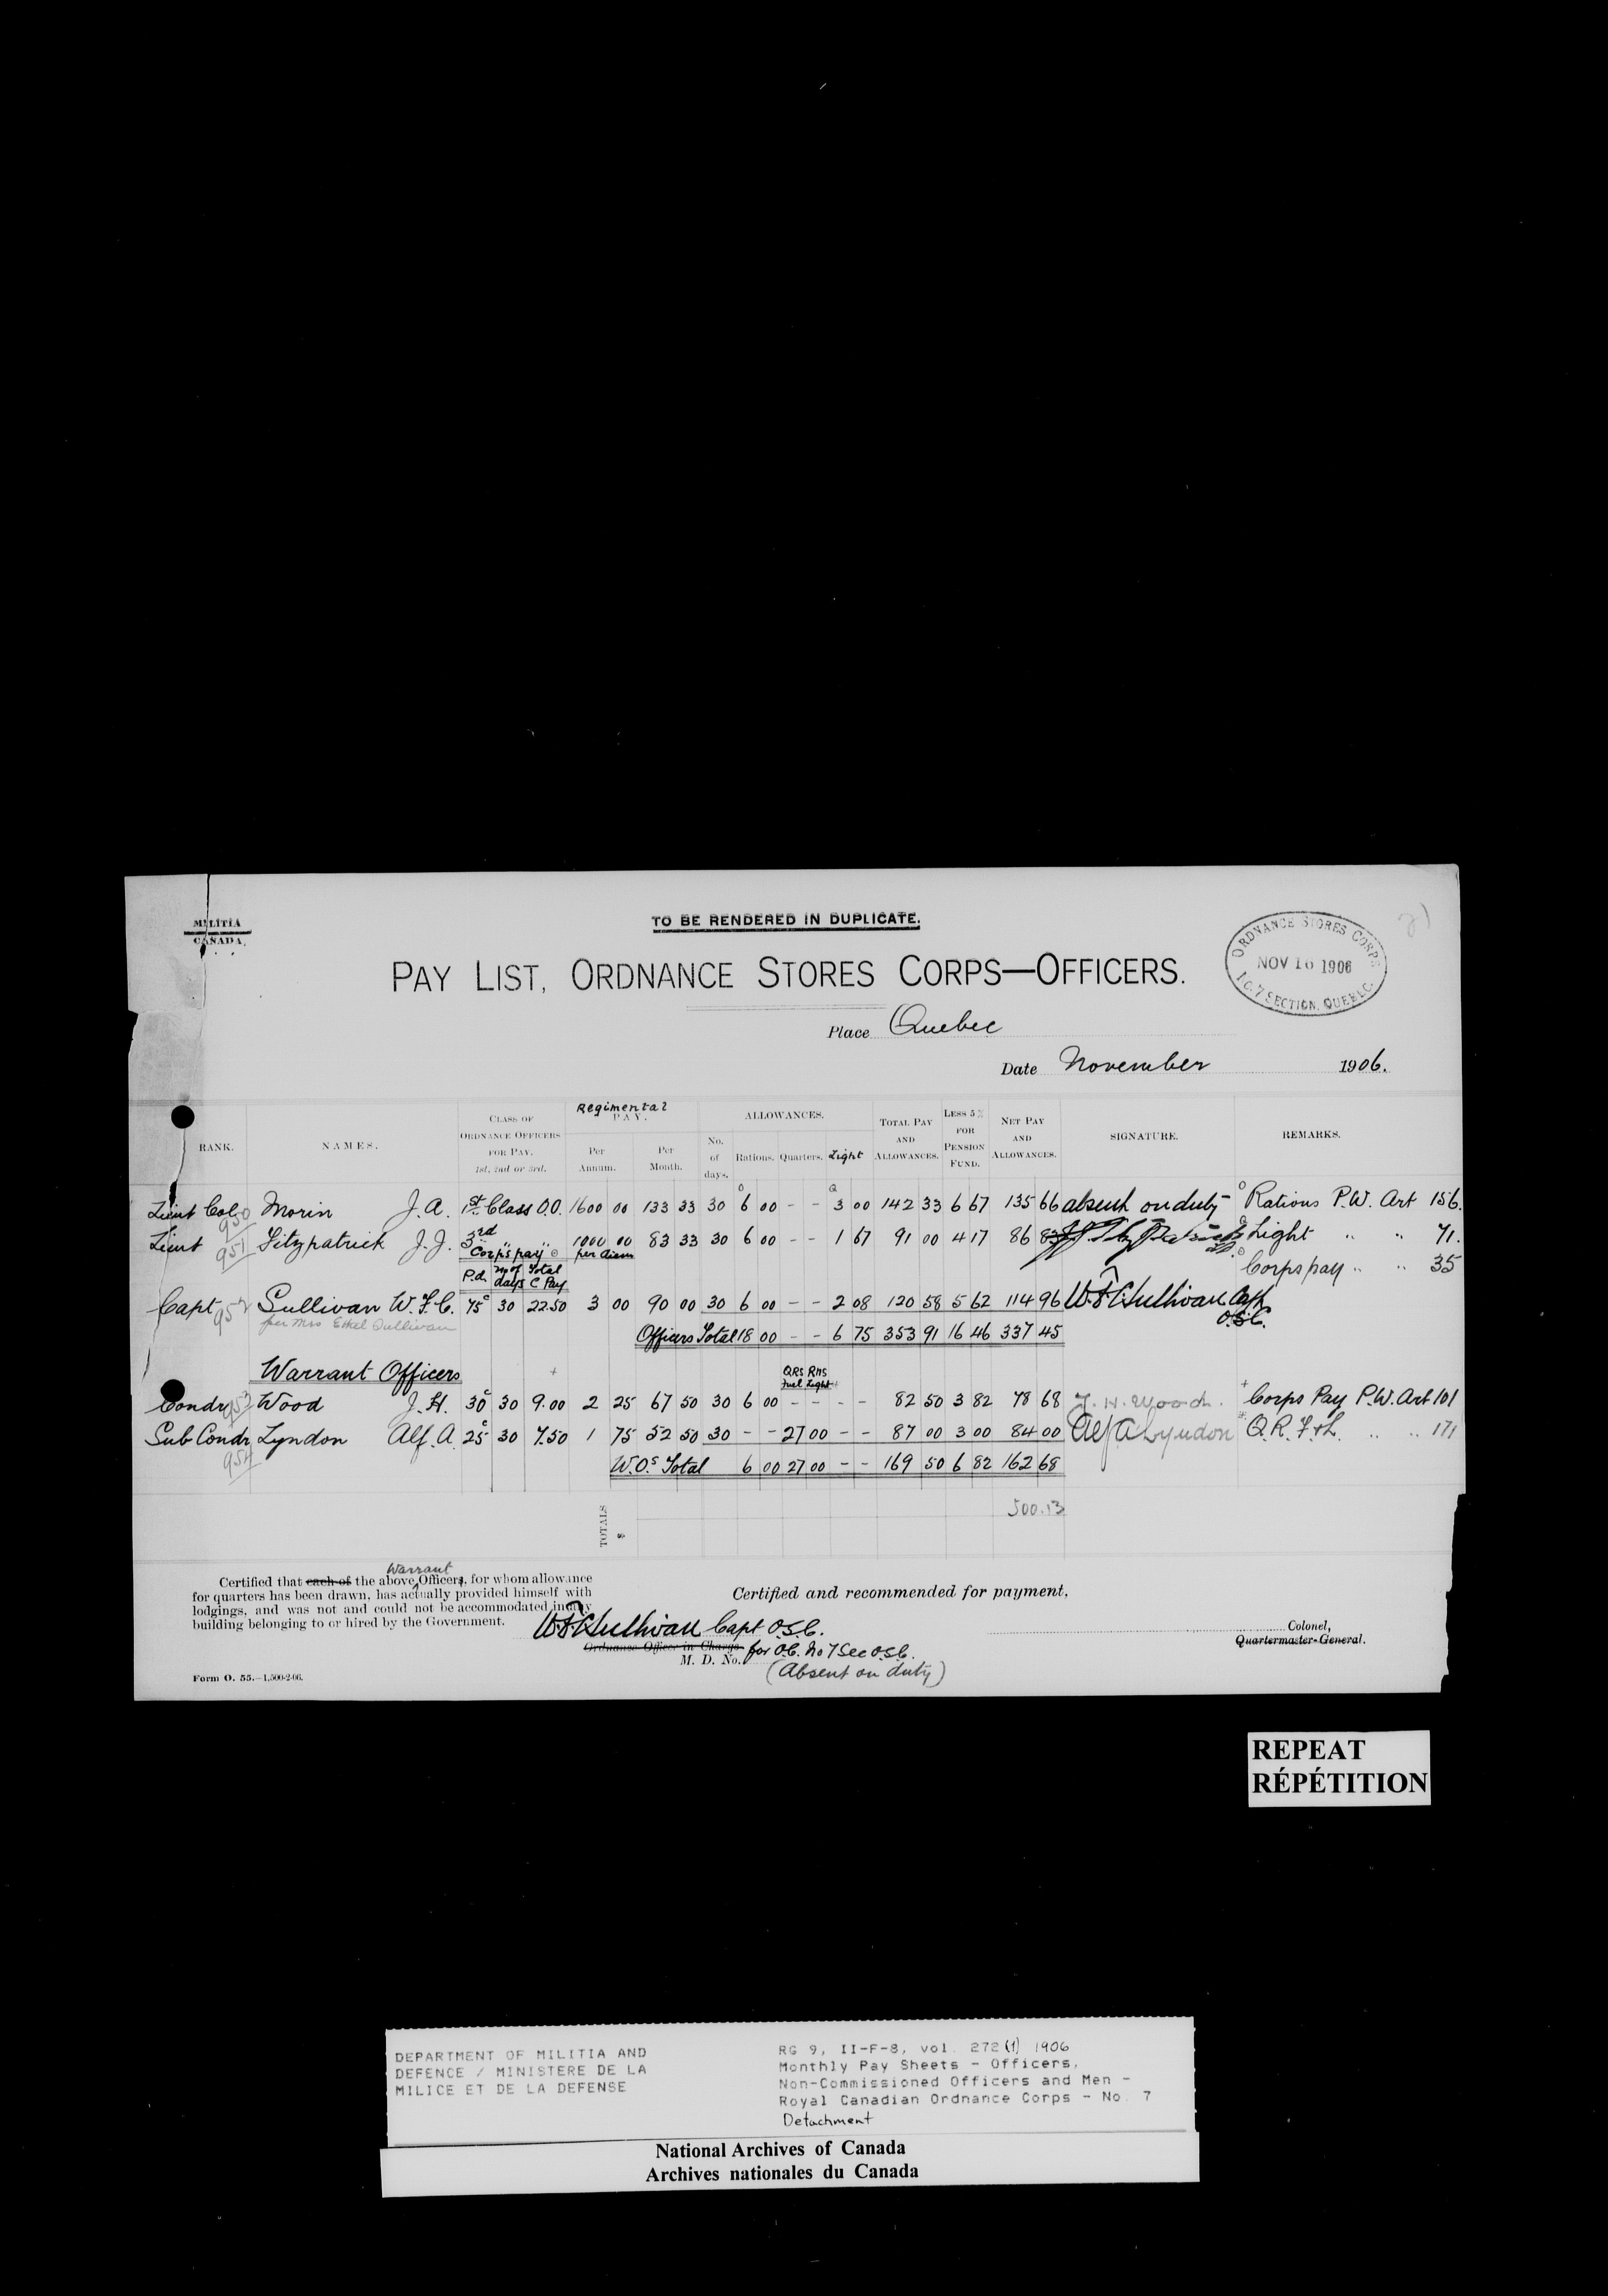 MILITIA
CANADA.
TO BE RENDERED IN DUPLICATE.
PAY LIST, ORDNANCE STORES CORPS—OFFICERS.
ORDNANCE STORES CORPS
NOV 16 1906
7 SECTION, QUEBEC.
Place Quebec
Date November 1906.
RANK. NAMES. CLASS OF ORDNANCE OFFICERS FOR PAY. 1st, 2nd or 3rd. Regimental PAY. Per Annum. Per Month. ALLOWANCES. No. of days. Rations. Quarters. Light TOTAL PAY AND ALLOWANCES. LESS 5% FOR PENSION FUND. NET PAY AND ALLOWANCES. SIGNATURE. REMARKS.
Lieut Col. 950 Morin J. A. 1st Class O.O. 1600 00 133 33 30 6 00 - - 3 00 142 33 6 67 135 66 absent on duty - Rations P.W. Art 156.
Lieut 951 Fitzpatrick J. J. 3rd " " 1000 00 83 33 30 6 00 - - 1 67 91 00 4 17 86 83 Light " " 71.
Corps pay per diem Corps pay " " 35
P.d. No of days Total C Pay
Capt 952 Sullivan W. F. C. 75c 30 22.50 3 00 90 00 30 6 00 - - 2 08 120 58 5 62 114 96 W F C Sullivan Capt
per Mrs Ethel Sullivan O.S.C.
Officers Total 18 00 - - 6 75 353 91 16 46 337 45
Warrant Officers + QRS RNS Fuel Light
Condr 953 Wood J. H. 30c 30 9.00 2 25 67 50 30 6 00 - - - - 82 50 3 82 78 68 J. H. Wood. + Corps Pay P.W. Art 101
Sub Condr 954 Lyndon Alf. A 25c 30 7.50 1 75 52 50 30 - - 27 00 - - 87 00 3 00 84 00 Alf A Lyndon Q. R. F. & L. " " 171
W.O.s Total 6 00 27 00 - - 169 50 6 82 162 68
TOTALS $ 500.13
Warrant
Certified that each of the above Officers, for whom allowance
for quarters has been drawn, has actually provided himself with
lodgings, and was not and could not be accommodated in any
building belonging to or hired by the Government.
Certified and recommended for payment,
W F C Sullivan Capt O.S.C.
Ordnance Officer in Charge for O.C. No 7 Sec O.S.C.
M. D. No.
(Absent on duty)
Colonel,
Quartermaster-General.
Form O. 55.—1,500-2-06.
REPEAT
RÉPÉTITION
DEPARTMENT OF MILITIA AND
DEFENCE / MINISTERE DE LA
MILICE ET DE LA DEFENSE
RG 9, II-F-8, vol. 272 (1) 1906
Monthly Pay Sheets - Officers,
Non-Commissioned Officers and Men -
Royal Canadian Ordnance Corps - No. 7
Detachment
National Archives of Canada
Archives nationales du Canada